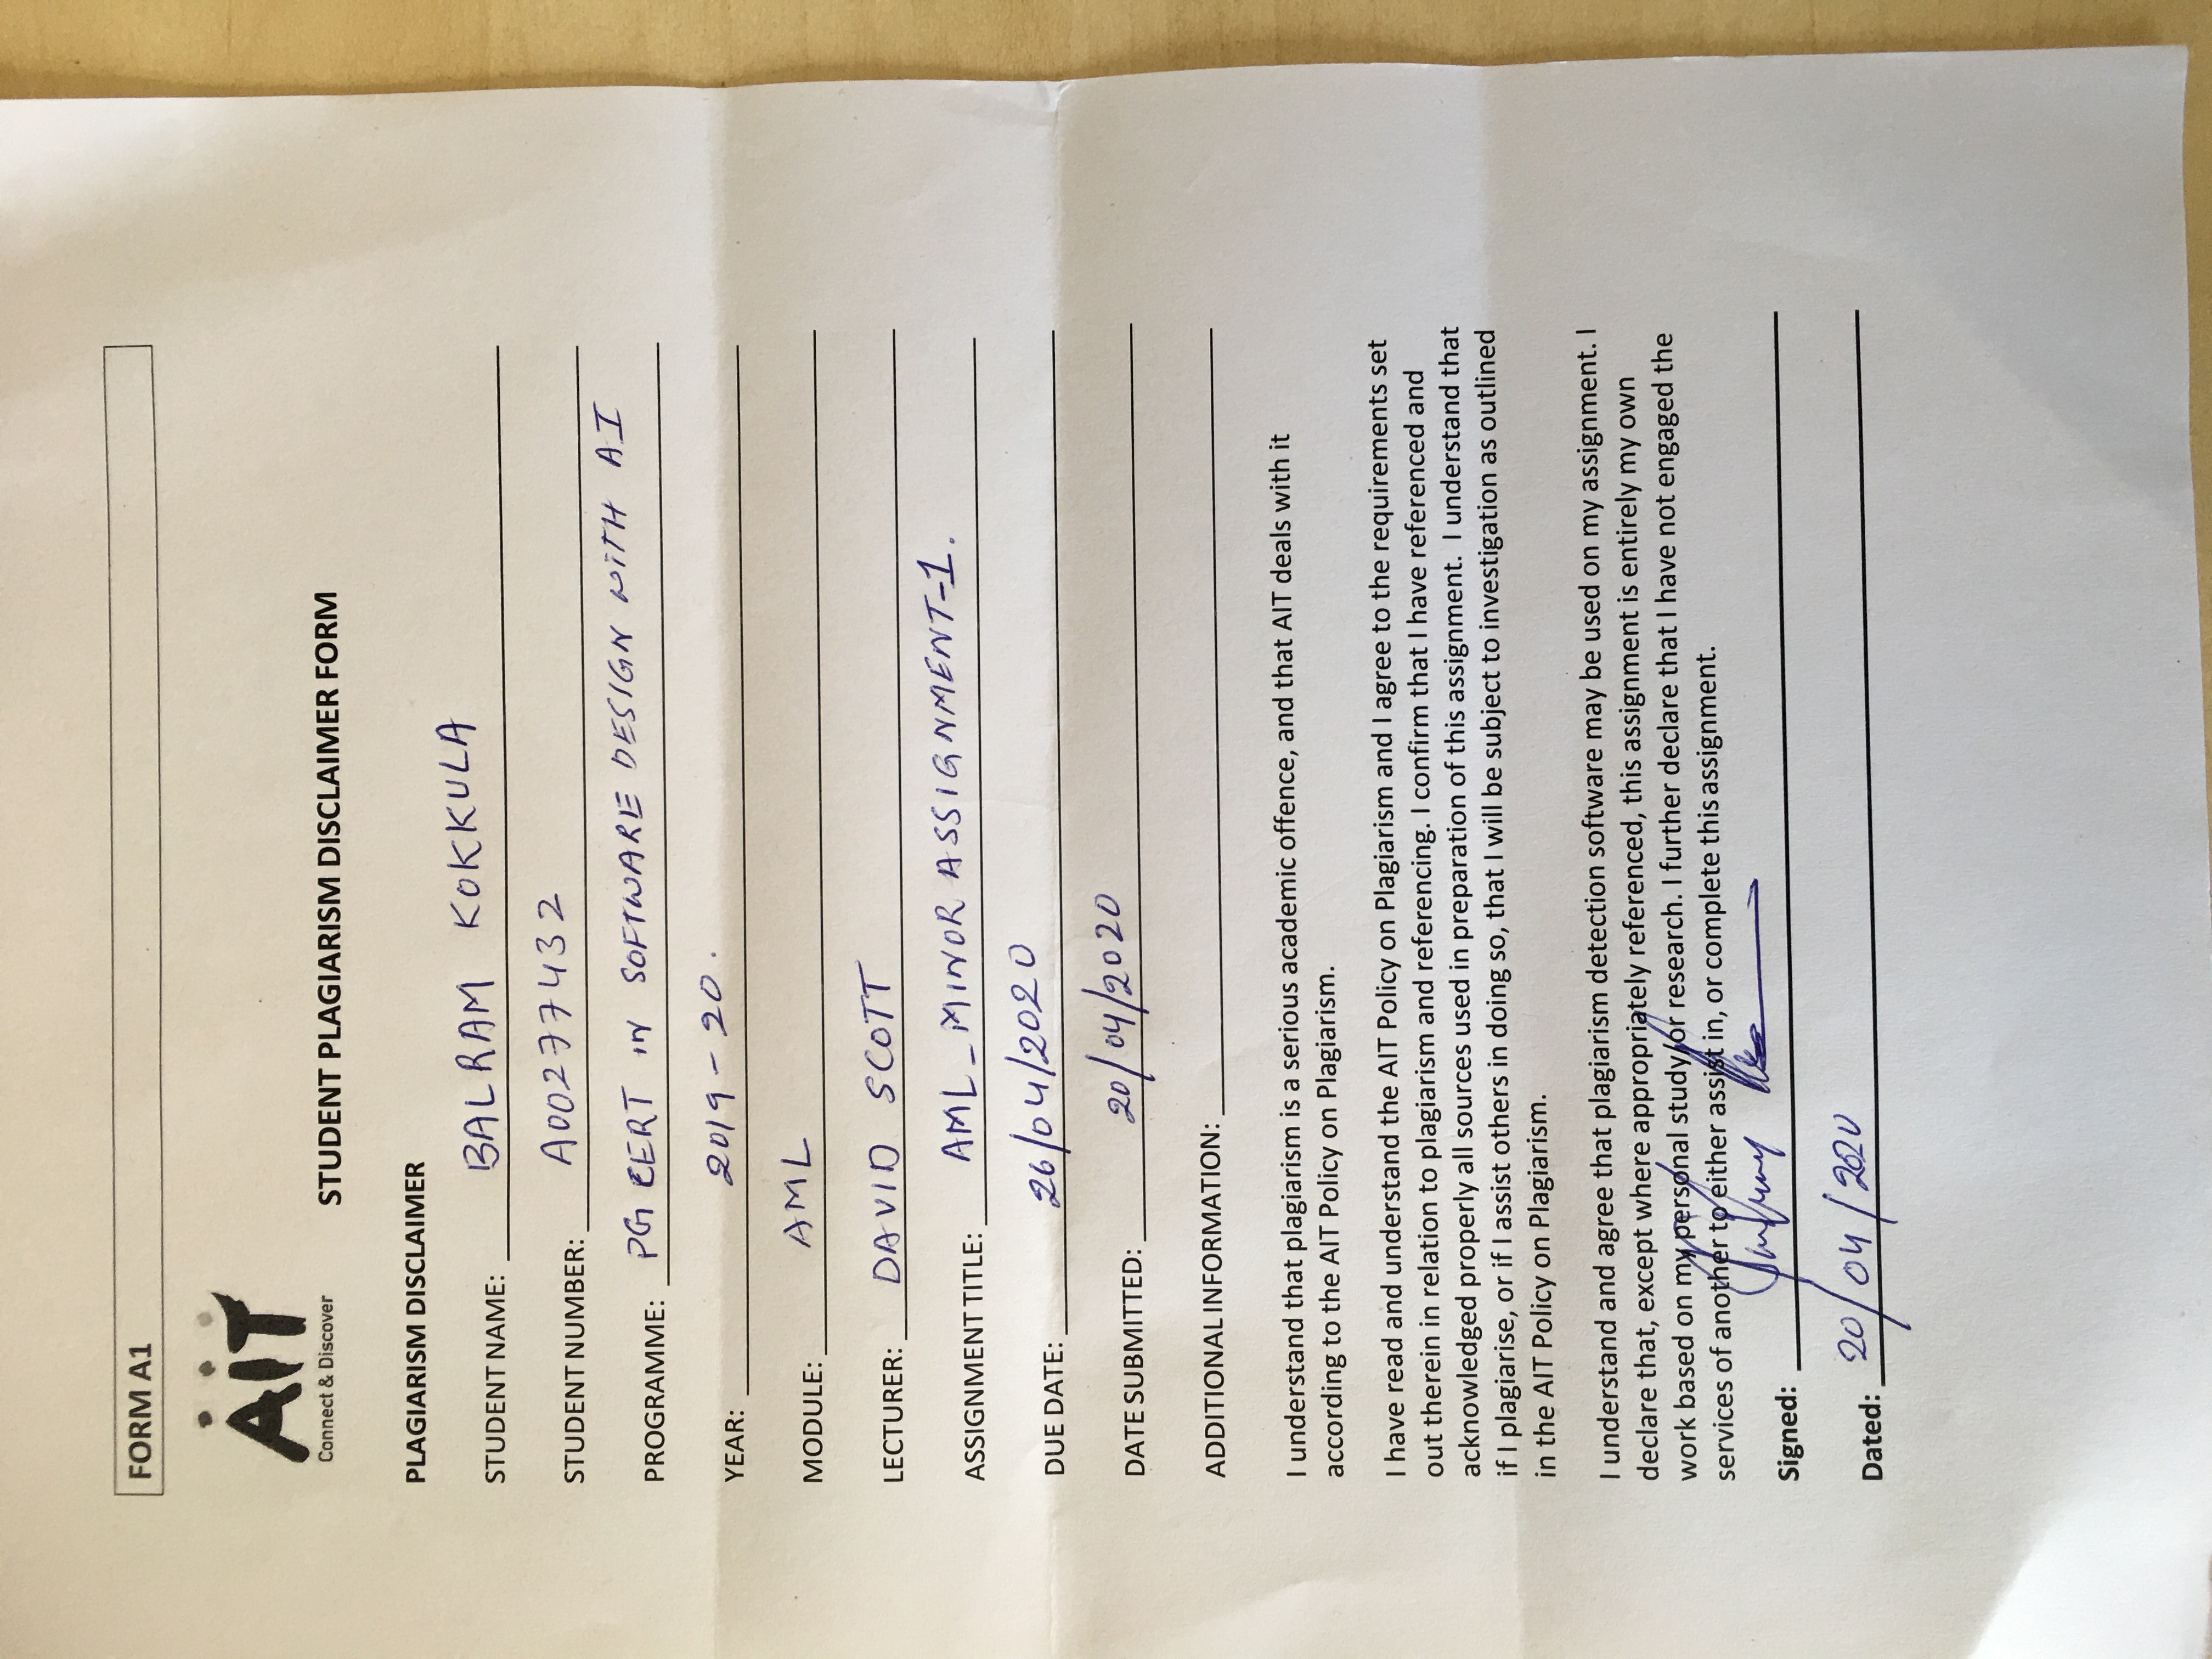 FORM A1
AIT
Connect & Discover
STUDENT PLAGIARISM DISCLAIMER FORM
PLAGIARISM DISCLAIMER
STUDENT NAME: BALRAM KOKKULA
STUDENT NUMBER: A00277432
PROGRAMME: PG CERT IN SOFTWARE DESIGN WITH AI
YEAR: 2019-20.
MODULE: AML
LECTURER: DAVID SCOTT
ASSIGNMENT TITLE: AML_MINOR ASSIGNMENT-1.
DUE DATE: 26/04/2020
DATE SUBMITTED: 20/04/2020
ADDITIONAL INFORMATION:
I understand that plagiarism is a serious academic offence, and that AIT deals with it
according to the AIT Policy on Plagiarism.
I have read and understand the AIT Policy on Plagiarism and I agree to the requirements set
out therein in relation to plagiarism and referencing. I confirm that I have referenced and
acknowledged properly all sources used in preparation of this assignment. I understand that
if I plagiarise, or if I assist others in doing so, that I will be subject to investigation as outlined
in the AIT Policy on Plagiarism.
I understand and agree that plagiarism detection software may be used on my assignment. I
declare that, except where appropriately referenced, this assignment is entirely my own
work based on my personal study/or research. I further declare that I have not engaged the
services of another to either assist in, or complete this assignment.
Signed:
Dated: 20/04/2020